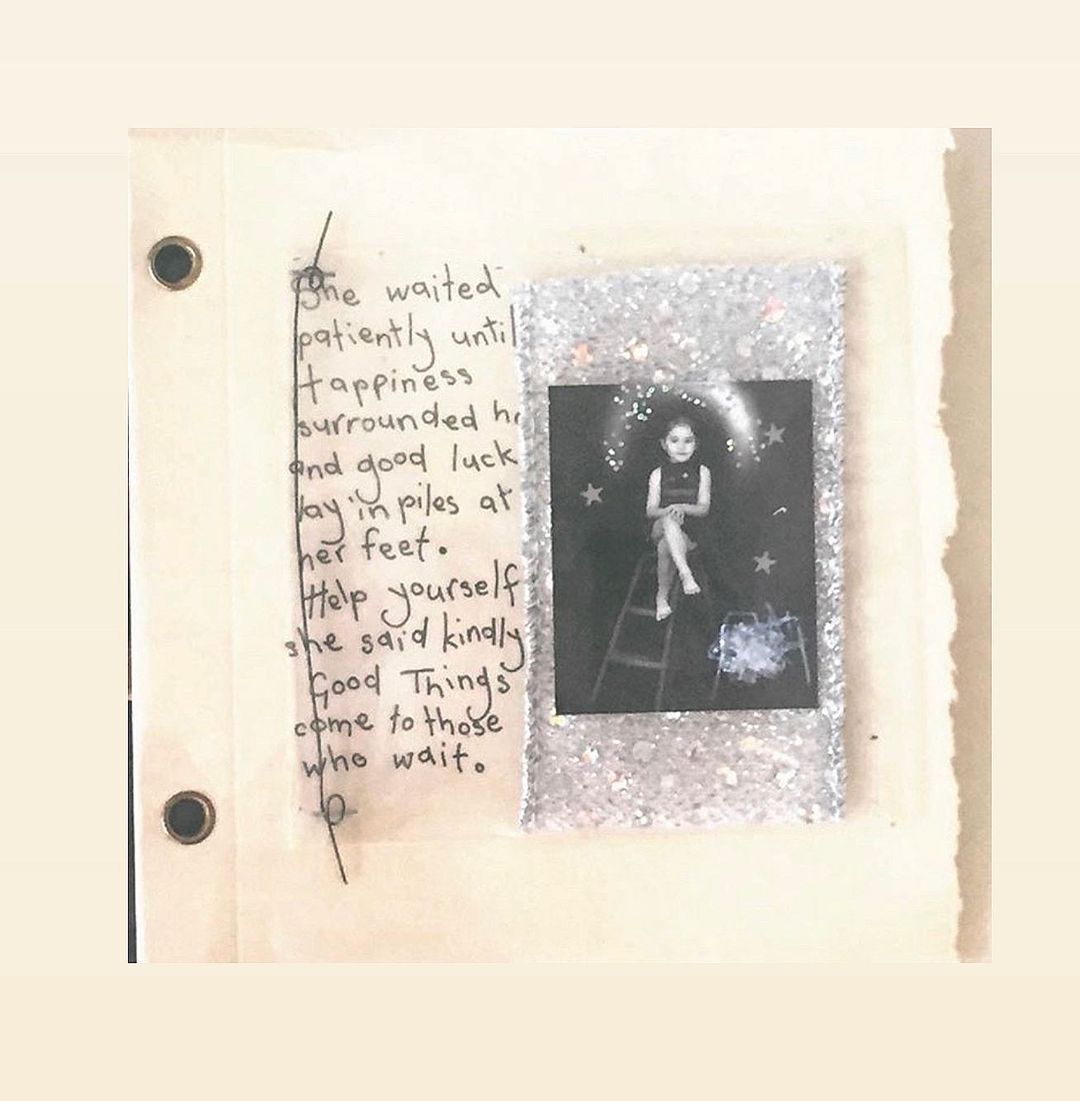 She waited
patiently until
Happiness
surrounded he
and good luck
lay in piles at
her feet.
Help yourself
she said kindly
Good Things
come to those
who wait.